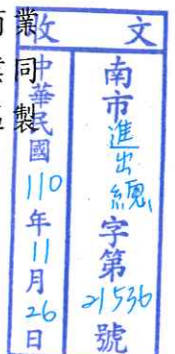 業
同
製
收文
南市進出總字第21536號
中華民國110年11月26日